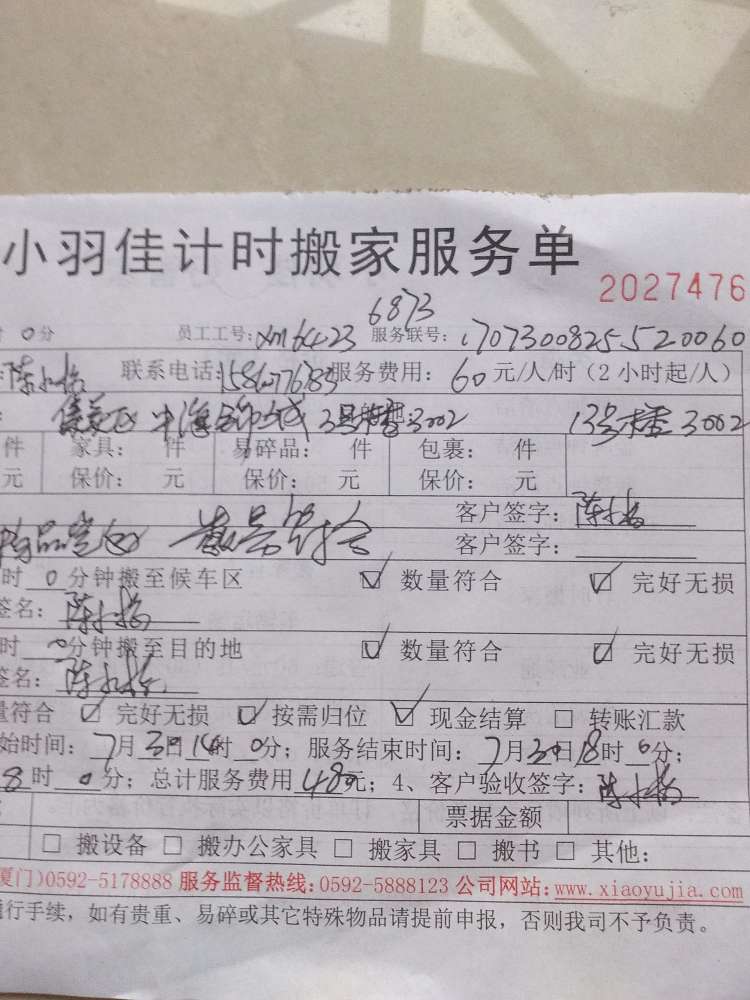 小羽佳计时搬家服务单
2027476
6873
时 0分 员工工号: xm6423 服务联号: 1707300825520060
陈 联系电话: 服务费用: 60 元/人/时（2小时起/人）
中海锦城 3002 13号楼3002
件 家具: 件 易碎品: 件 包裹: 件
元 保价: 元 保价: 元 保价: 元
客户签字: 陈
物品 客户签字:
时 0分钟搬至候车区 ☑ 数量符合 ☑ 完好无损
签名: 陈
时 0分钟搬至目的地 ☑ 数量符合 ☑ 完好无损
签名: 陈
量符合 ☑ 完好无损 ☑ 按需归位 ☑ 现金结算 □ 转账汇款
始时间: 7月30日14时 0分; 服务结束时间: 7月30日18时 0分;
8时 0分; 总计服务费用 480元; 4、客户验收签字: 陈
票据金额
□ 搬设备 □ 搬办公家具 □ 搬家具 □ 搬书 □ 其他:
厦门)0592-5178888 服务监督热线:0592-5888123 公司网站:www.xiaoyujia.com
通行手续，如有贵重、易碎或其它特殊物品请提前申报，否则我司不予负责。